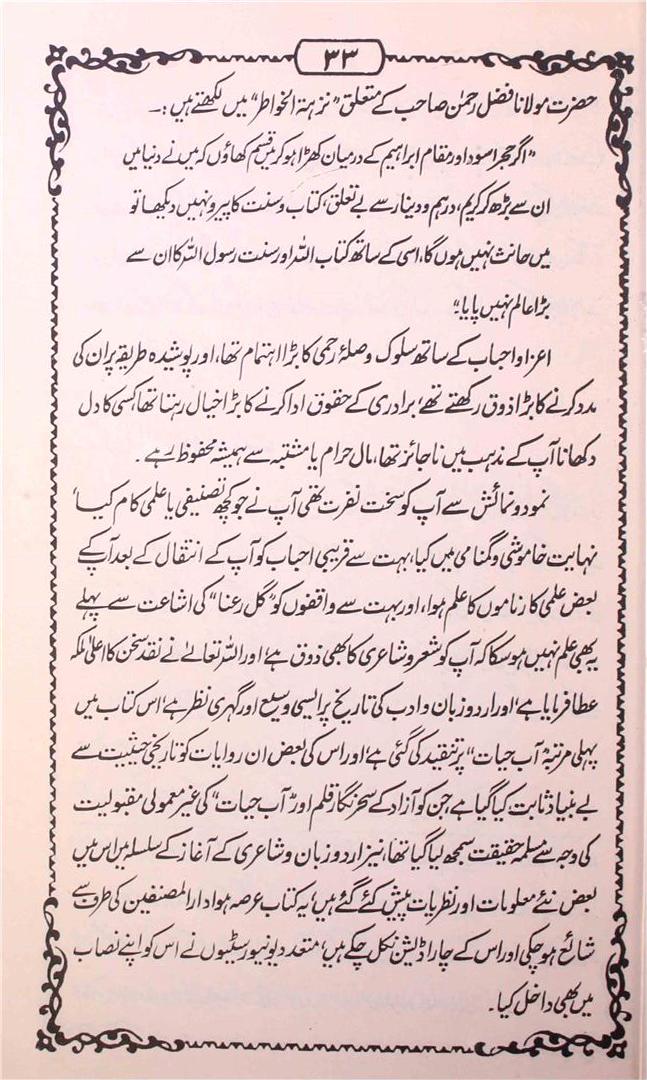 ۳۳
حضرت مولانا فضل رحمٰن صاحب کے متعلق "نزہۃ الخواطر" میں لکھتے ہیں :۔
"اگر حجر اسود اور مقام ابراہیم کے درمیان کھڑا ہو کر میں قسم کھاؤں کہ میں نے دنیا میں
ان سے بڑھ کر کریم، درہم و دینار سے بے تعلق، کتاب و سنت کا پیرو نہیں دیکھا تو
میں حانث نہیں ہوں گا، اسی کے ساتھ کتاب اللہ اور سنت رسول اللہ کا ان سے
بڑا عالم نہیں پایا۔"
اعزا و احباب کے ساتھ سلوک و صلۂ رحمی کا بڑا اہتمام تھا، اور پوشیدہ طریقہ پر ان کی
مدد کرنے کا بڑا ذوق رکھتے تھے، برادری کے حقوق ادا کرنے کا بڑا خیال رہتا تھا، کسی کا دل
دکھانا آپ کے مذہب میں ناجائز تھا، مال حرام یا مشتبہ سے ہمیشہ محفوظ رہے۔
نمود و نمائش سے آپ کو سخت نفرت تھی آپ نے جو کچھ تصنیفی یا علمی کام کیا،
نہایت خاموشی و گمنامی میں کیا، بہت سے قریبی احباب کو آپ کے انتقال کے بعد آپ کے
بعض علمی کارناموں کا علم ہوا، اور بہت سے واقفوں کو "گل رعنا" کی اشاعت سے پہلے
یہ بھی علم نہیں ہو سکا کہ آپ کو شعر و شاعری کا بھی ذوق ہے، اور اللہ تعالےٰ نے نقد سخن کا اعلیٰ ملکہ
عطا فرمایا ہے، اور اردو زبان و ادب کی تاریخ پر ایسی وسیع اور گہری نظر ہے، اس کتاب میں
پہلی مرتبہ "آب حیات" پر تنقید کی گئی ہے، اور اس کی بعض ان روایات کو تاریخی حیثیت سے
بے بنیاد ثابت کیا گیا ہے جن کو آزاد کے سحر نگار قلم اور "آب حیات" کی غیر معمولی مقبولیت
کی وجہ سے مسلمہ حقیقت سمجھ لیا گیا تھا، نیز اردو زبان و شاعری کے آغاز کے سلسلہ میں اس میں
بعض نئے معلومات اور نظریات پیش کئے گئے ہیں، یہ کتاب عرصہ ہوا دارالمصنفین کی طرف سے
شائع ہو چکی اور اس کے چار اڈیشن نکل چکے ہیں، متعدد یونیورسٹیوں نے اس کو اپنے نصاب
میں بھی داخل کیا۔